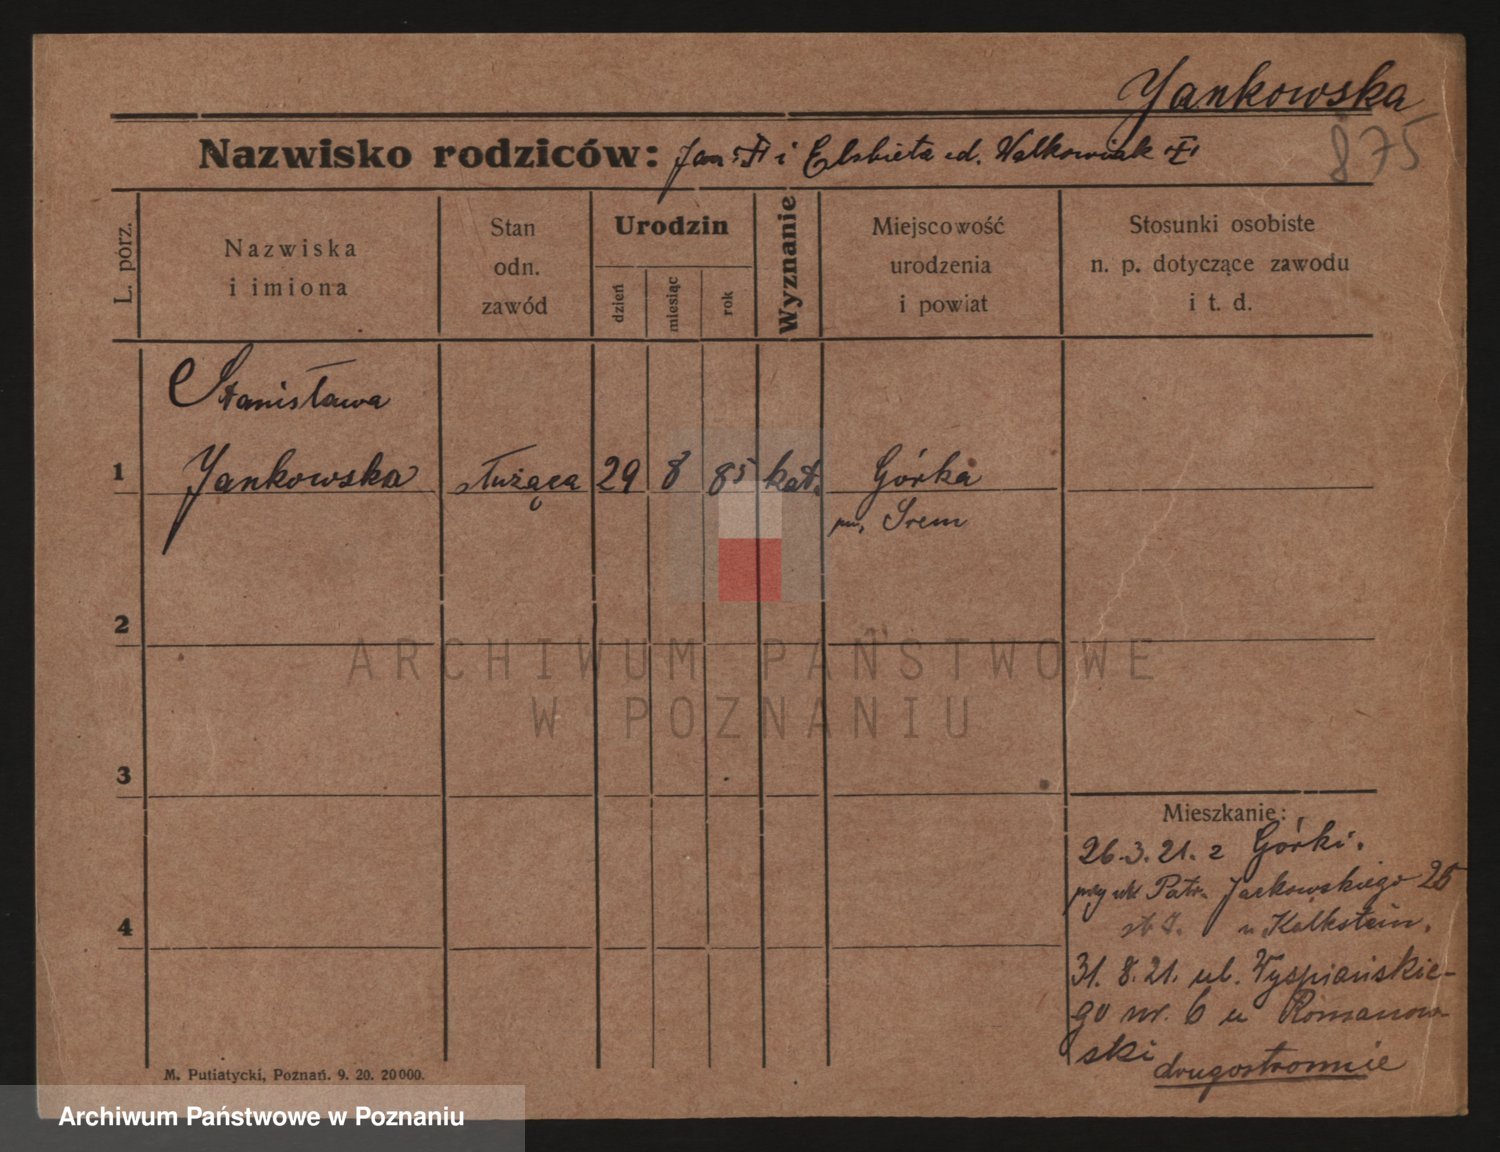 Jankowska
875
Nazwisko rodziców: Jan i Elsbieta Walkowiak
L. porz.
Nazwiska
i imiona
Stan
odn.
zawód
Urodzin
dzień
miesiąc
rok
Wyznanie
Miejscowość
urodzenia
i powiat
Stosunki osobiste
n. p. dotyczące zawodu
i t. d.
Stanisława
1 Jankowska służąca 29 8 85 kat. Górka
pw. Śrem
2
3
4
Mieszkanie:
26.3.21. z Górki.
przy ul. Patr. Jackowskiego 25
u Kalkstein.
31. 8. 21. ul. Wyspiańskie-
go nr. 6 u Romanow-
ski
drugostronnie
M. Putiatycki, Poznań. 9. 20. 20000.
ARCHIWUM PAŃSTWOWE
W POZNANIU
Archiwum Państwowe w Poznaniu